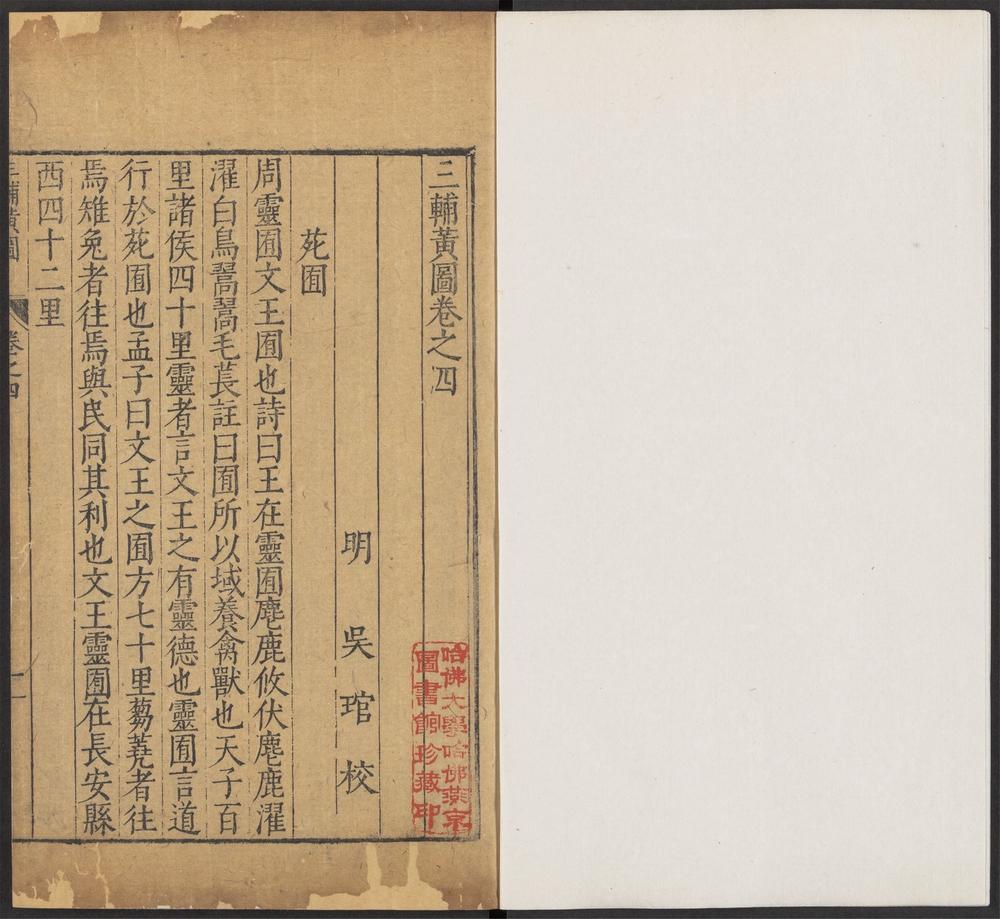 三輔黃圖卷之四
明吳琯校
苑囿
周靈囿文王囿也詩曰王在靈囿麀鹿攸伏麀鹿濯
濯白鳥翯翯毛萇註曰囿所以域養禽獸也天子百
里諸侯四十里靈者言文王之有靈德也靈囿言道
行於苑囿也孟子曰文王之囿方七十里蒭蕘者往
焉雉兔者往焉與民同其利也文王靈囿在長安縣
西四十二里
三輔黃圖 卷之四 一
哈佛大學哈佛燕京
圖書館珍藏印